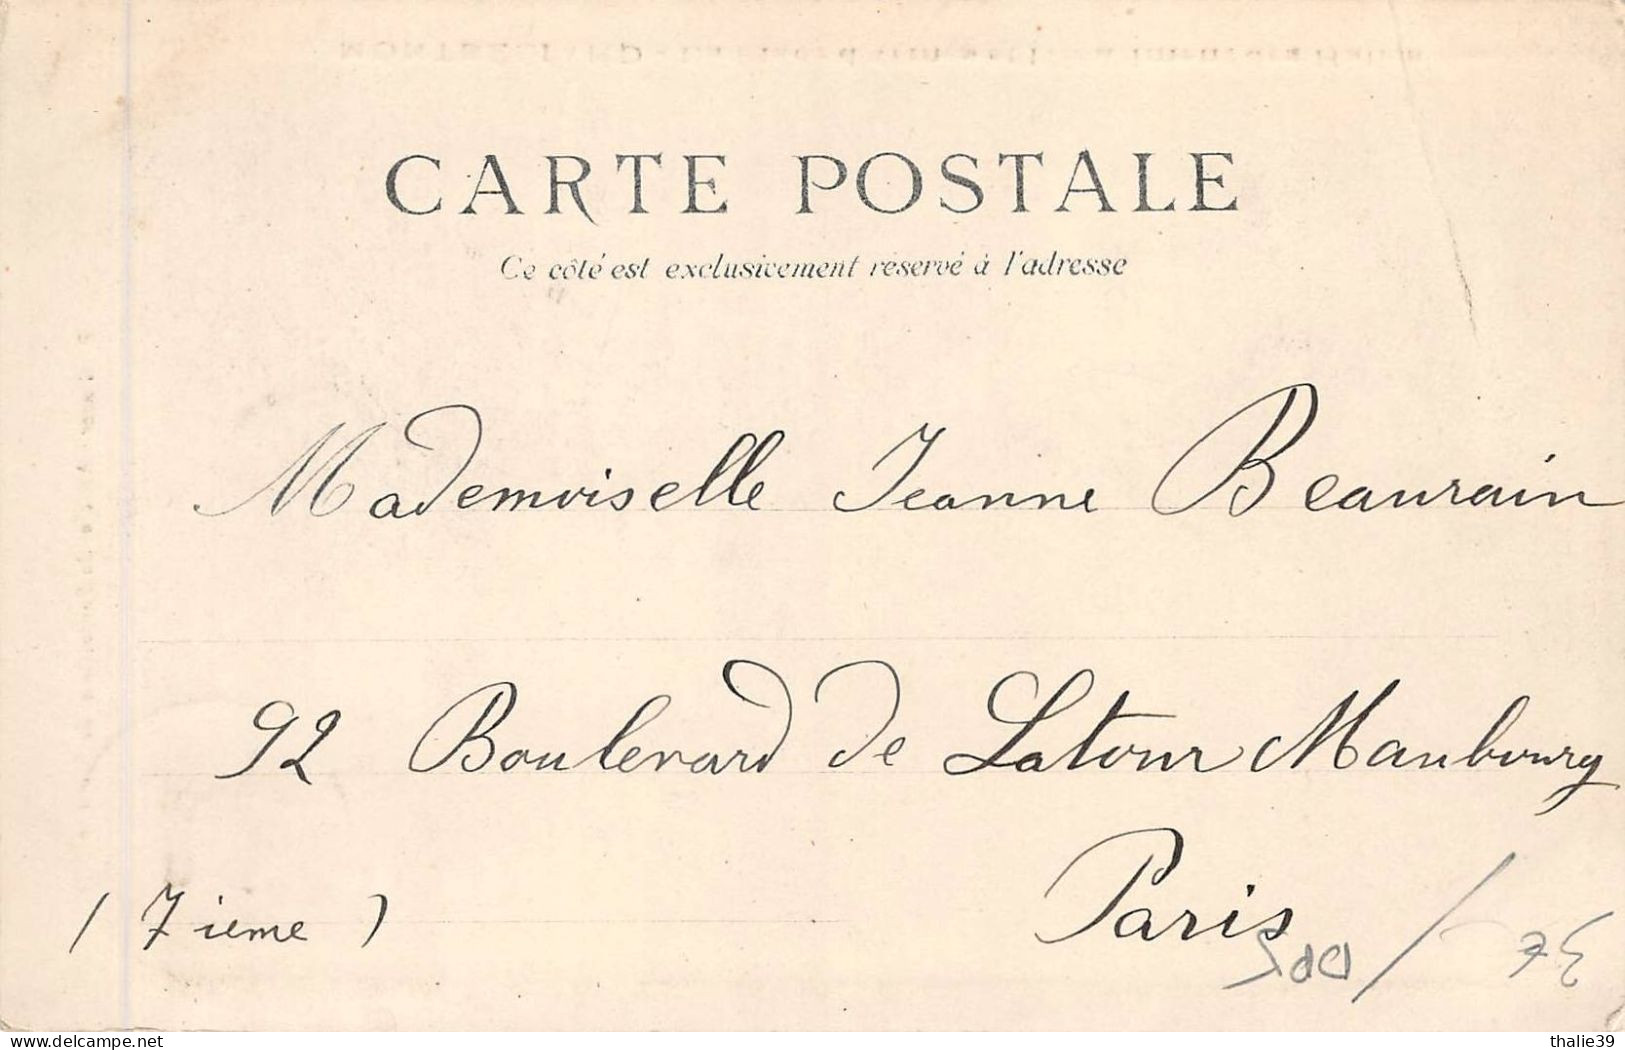 CARTE POSTALE
Ce côté est exclusivement réservé à l'adresse
Mademoiselle Jeanne Beaurain
92 Boulevard de Latour Maubourg
Paris
( 7ième )
delcampe.net
thalie39